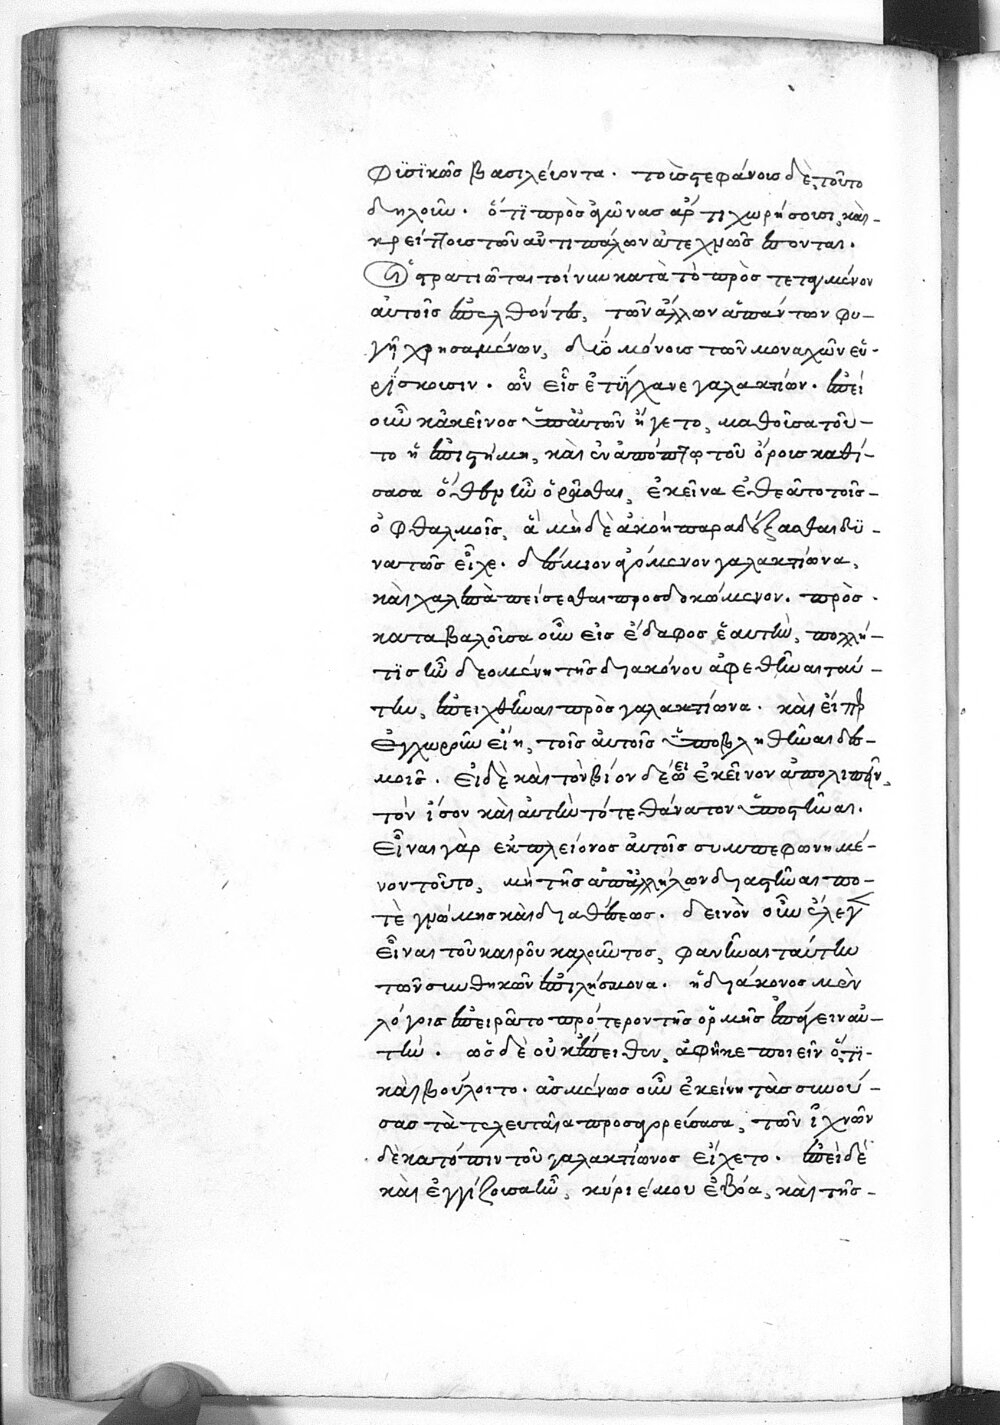 φυσικῶς βασιλεύοντα. τοὺς στεφάνους δὲ, τοῦτο
δηλοῦν. ὅτι πρὸς ἀγῶνας ἄρτι χωρήσουσι, καὶ
κρείττους τῶν ἀντιπάλων ἀτεχνῶς ἔσονται.
Οἱ στρατιῶται τοίνυν κατὰ τὸ προστεταγμένον
αὐτοῖς ἐπελθόντες, τῶν ἄλλων ἁπάντων φυ-
γῇ χρησαμένων, δυσὶ μόνοις τῶν μοναχῶν εὑ-
ρίσκουσιν. ὧν εἷς ἐτύγχανε γαλακτίων. ἐπεὶ
οὖν κἀκεῖνος ὑπ' αὐτῶν ἤγετο, μαθοῦσα τοῦ-
το ἡ ἐπιστήμη, καὶ ἐν ἀπόπτῳ τοῦ ὄρους καθί-
σασα ὅθεν ἦν ὁρᾶσθαι, ἐκεῖνα ἐθεᾶτο τοῖς
ὀφθαλμοῖς, ἃ μηδὲ ἀκοὴ παραδέξασθαι δυ-
νατῶς εἶχε. δέσμιον ἀγόμενον γαλακτίωνα,
καὶ χαλεπὰ πείσεσθαι προσδοκώμενον. προσ-
καταβαλοῦσα οὖν εἰς ἔδαφος ἑαυτὴν, πολλή
τις ἦν δεομένη τῆς διακόνου ἀφεθῆναι ταύ-
την, ἐπειχθῆναι πρὸς γαλακτίωνα. καὶ εἴπερ
ἐγχωροῦν εἴη, τοῖς αὐτοῖς ὑποβληθῆναι δε-
σμοῖς. εἰ δὲ καὶ τὸν βίον δέοι ἐκεῖνον ἀπολιπεῖν,
τὸν ἴσον καὶ αὐτὴν τότε θάνατον ὑποστῆναι.
εἶναι γὰρ ἐκ πλείονος αὐτοῖς συμπεφωνημέ-
νον τοῦτο, μὴ τῆς ἀπ' ἀλλήλων διαστῆναι πο-
τὲ γνώμης καὶ διαθέσεως. δεινὸν οὖν ἔλεγεν
εἶναι τοῦ καιροῦ καλοῦντος, φανῆναι ταύτην
τῶν συνθηκῶν ἐπιλήσμονα. ἡ διάκονος μὲν
λόγοις ἐπειρᾶτο πρότερον τῆς ὁρμῆς ἐπάγειν αὐ-
τήν. ὡς δὲ οὐκ ἔπειθεν, ἀφῆκε ποιεῖν ὅ,τι
καὶ βούλοιτο. ἀσμένως οὖν ἐκείνη τὰς συνού-
σας τὰ τελευταῖα προσαγορεύσασα, τῶν ἰχνῶν
δὲ κατόπιν τοῦ γαλακτίωνος εἴχετο. ἐπεὶ δὲ
καὶ ἐγγίζουσα ἦν, κύριέ μου ἐβόα, καὶ τῆς